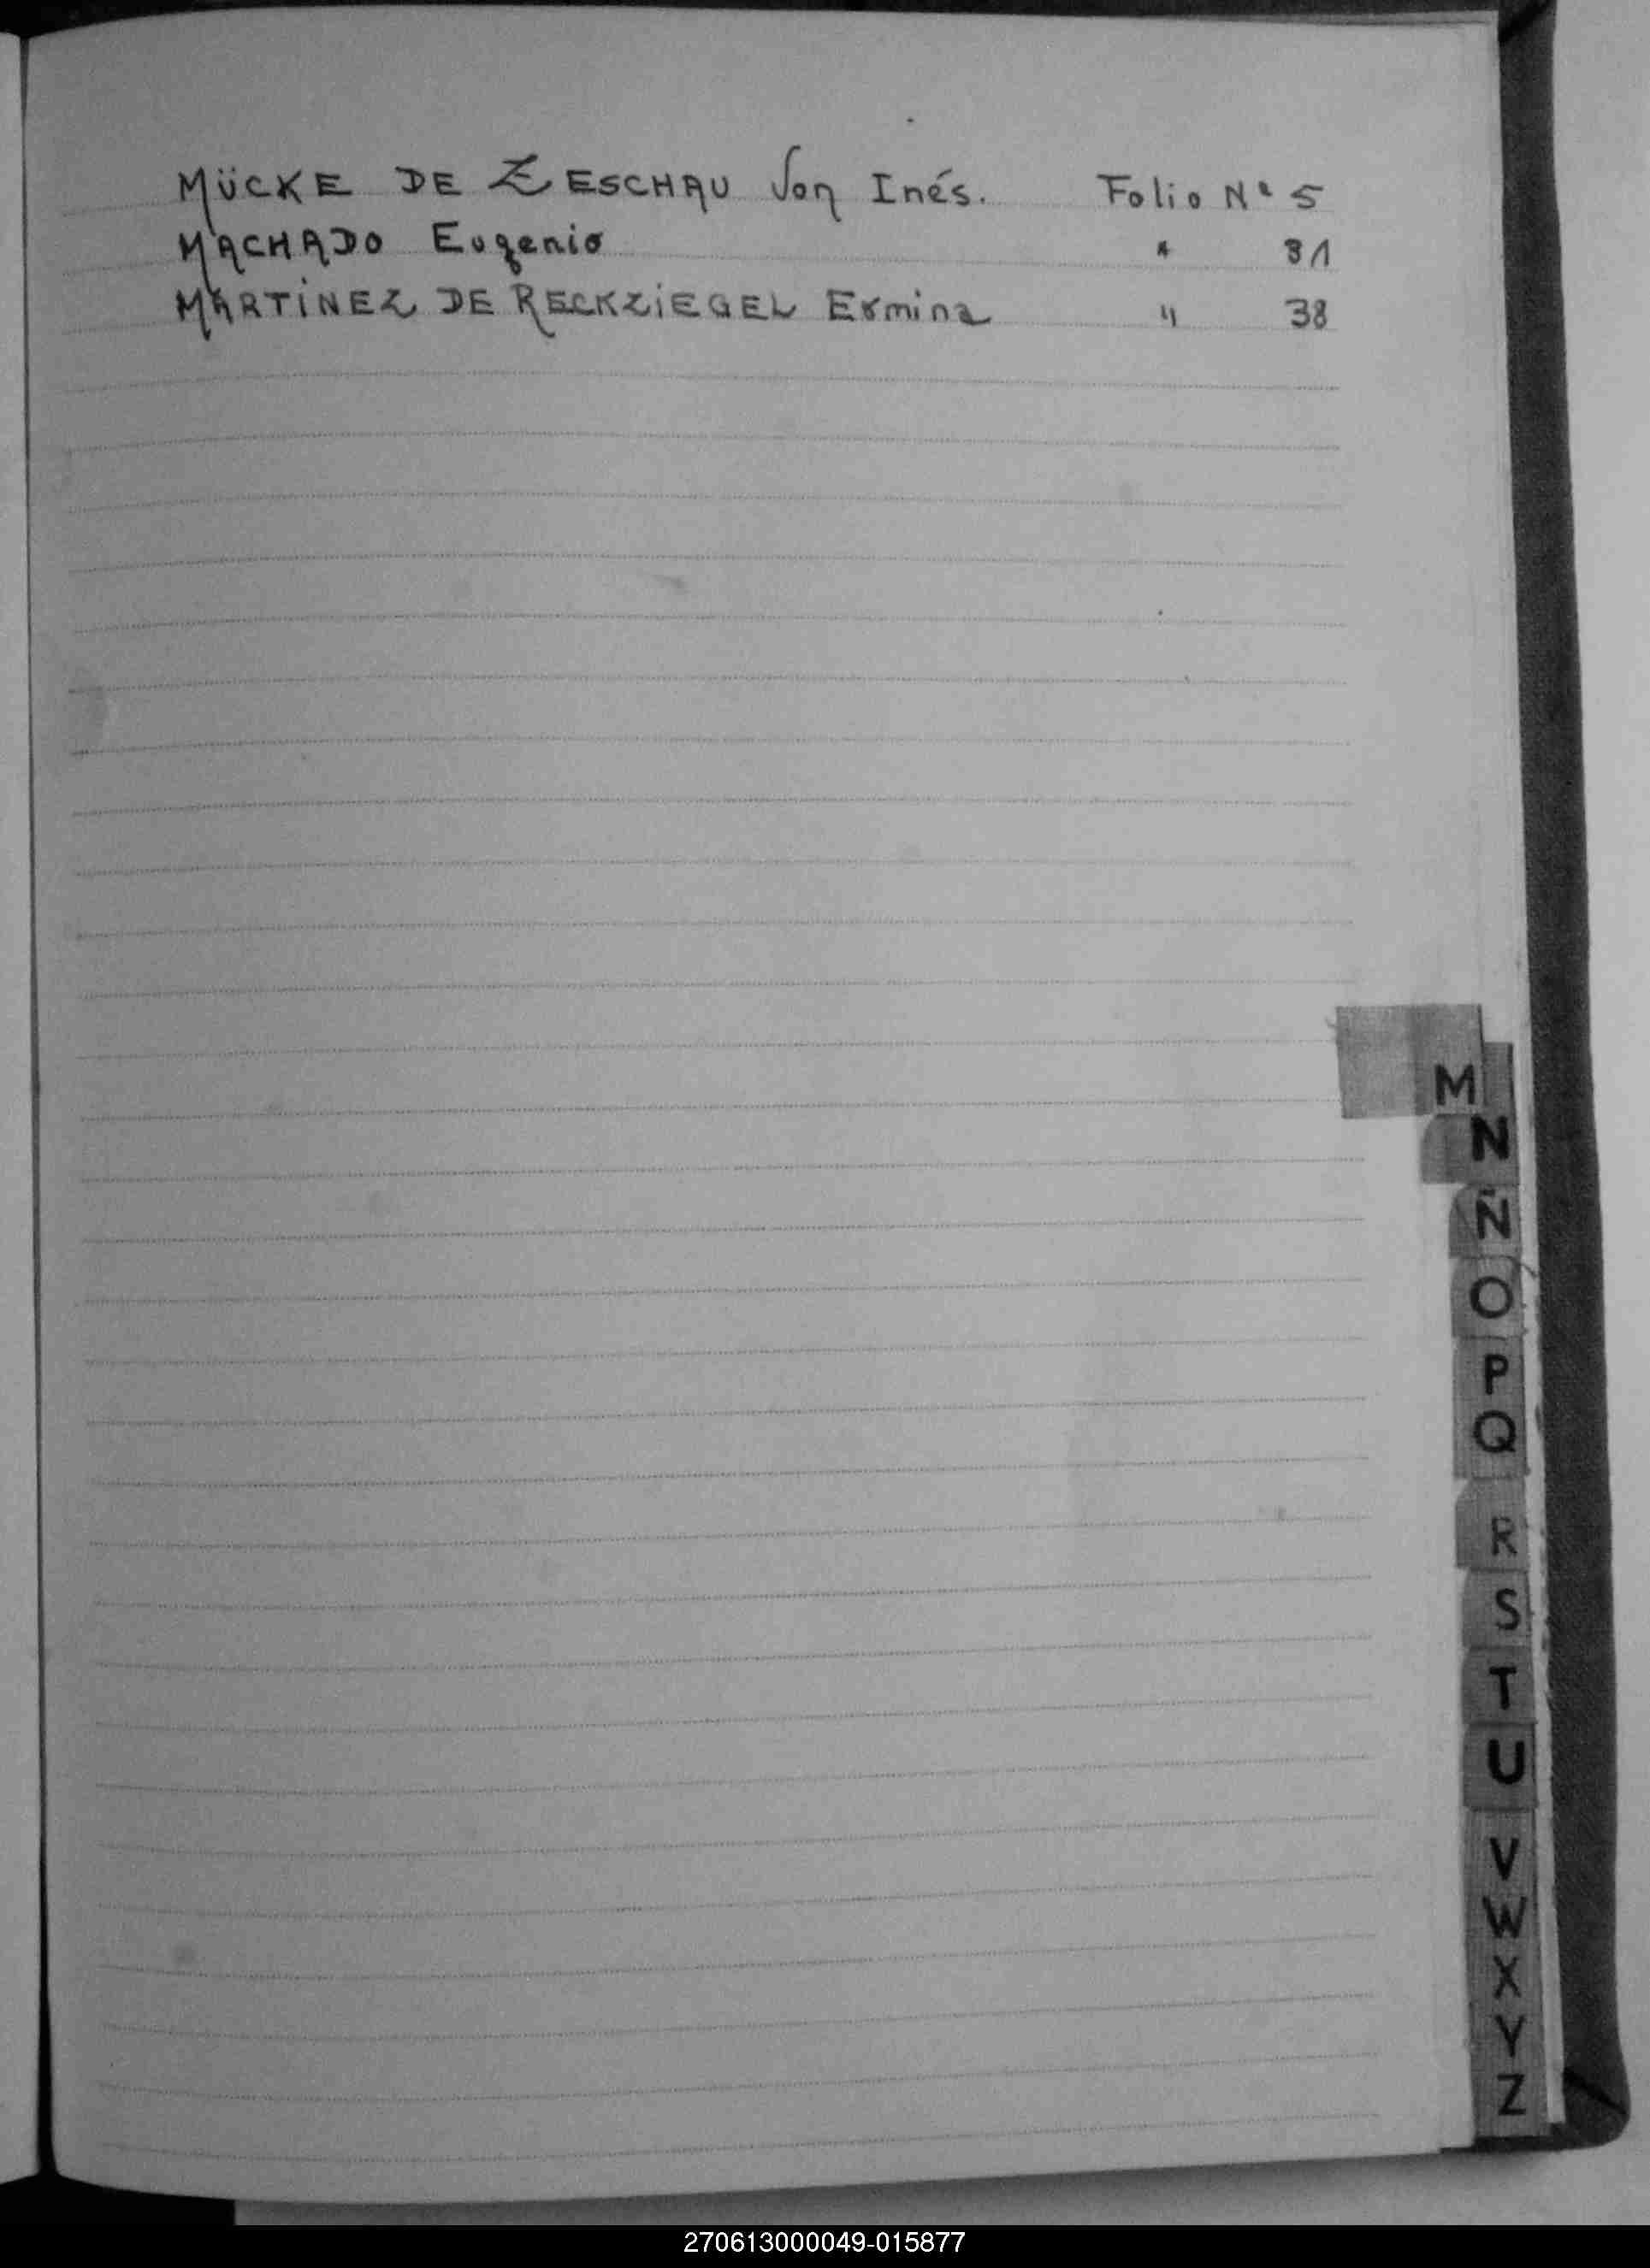 MÜCKE DE ZESCHAU Von Inés. Folio Nº 5
MACHADO Eugenio " 31
MARTÍNEZ DE RECKZIEGEL Ermina " 38
M
N
Ñ
O
P
Q
R
S
T
U
V
W
X
Y
Z
270613000049-015877